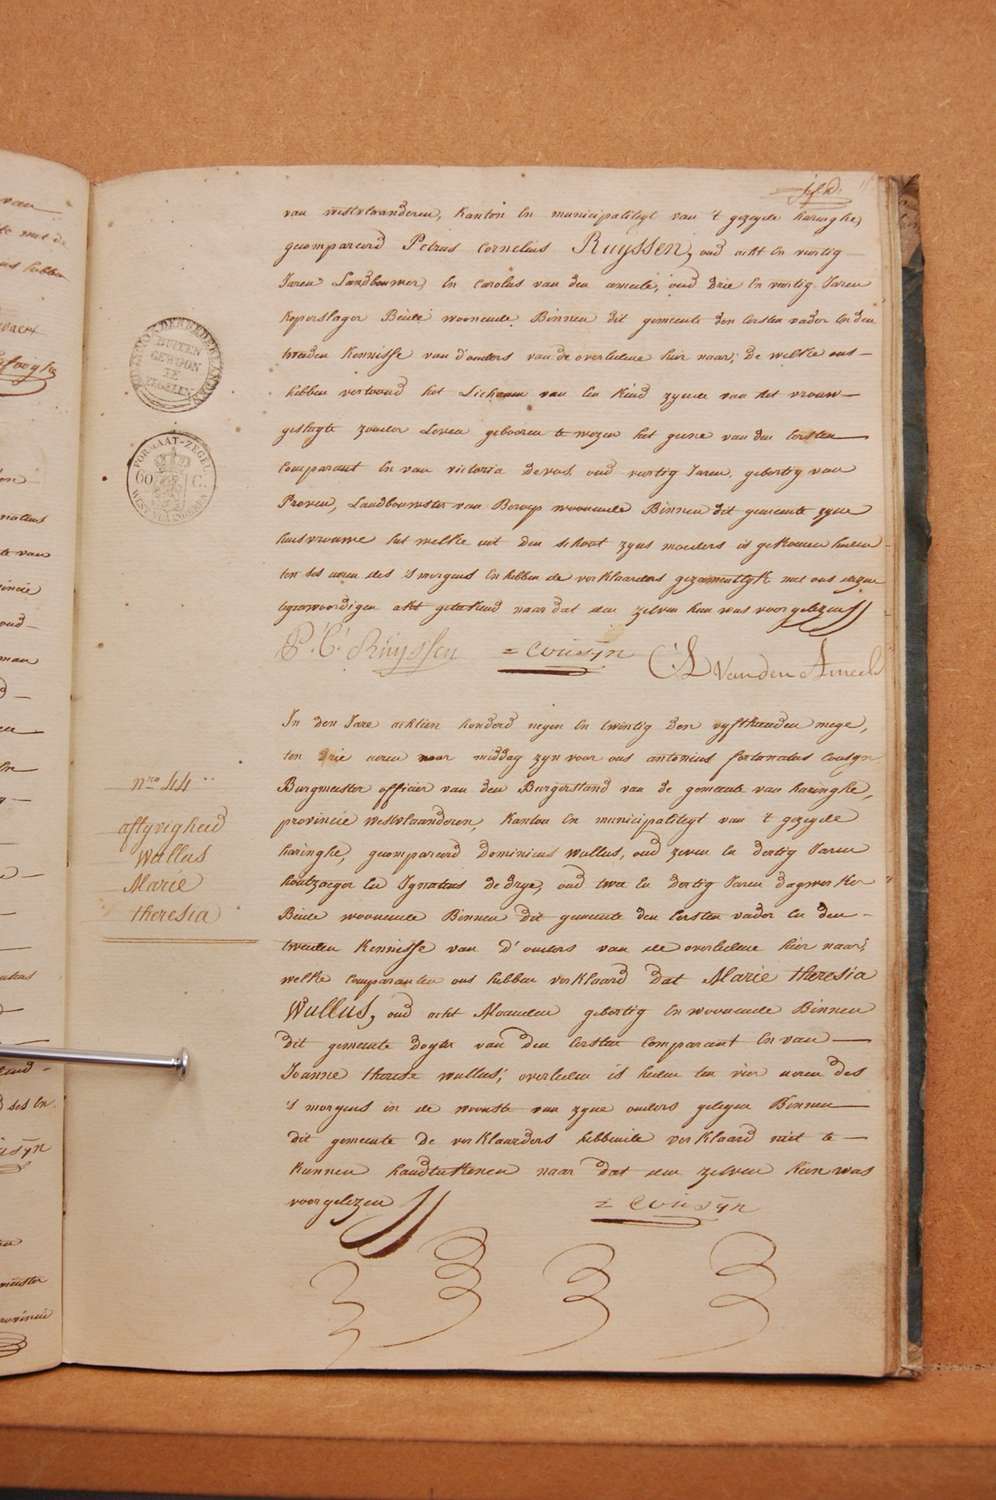 van westvlaanderen, Kanton En municipaliteyt van 't gezeyde haringhe,
gecompareerd Petrus Cornelius Ruyssen, oud acht En viertig
Jaren Landbouwer, En Carolus van den ameele, oud drie En viertig Jaren
koperslager Beide woonende Binnen dit gemeente den Eersten vader En den
tweeden Kennisse van d'ouders van de overledene hier naar; de welke ons
hebben vertoond het Lichaam van Een Kind zynde van het vrouw
geslagte zonder Leven gebooren te wezen het geene van den Eersten
Comparant En van victoria devos, oud viertig Jaren, gebortig van
Proven, Landbouwster van Beroep woonende Binnen dit gemeente zyne
huisvrouwe het welke uit den schoot zyns moeders is gekomen heden
ten ses uren des 's morgens En hebben de verklaarders gezamentlyk met ons dezen
tegenwoordigen akt geteekend naar dat den zelven hun was voorgelezen
P: C: Ruyssen = Cousyn CL Vanden Ameele
In den Jare achtien honderd negen En twintig den vyfthienden mege,
ten drie uren naar middag zyn voor ons antonius fortunatus Cousyn
Burgmeester officier van den Burgerstand van de gemeente van haringhe,
provincie westvlaanderen, Kanton En municipaliteyt van 't gezeyde
haringhe, gecompareerd Dominicus Wullus, oud zeven En dertig Jaren
houtzaeger En Ignatius de drye, oud twee En dertig Jaren dagwerker
Beide woonende Binnen dit gemeente den Eersten vader En den
tweeden Kennisse van d'ouders van de overledene hier naar;
welke Comparanten ons hebben verklaard dat Marie theresia
Wullus, oud acht Maenden gebortig En woonende Binnen
dit gemeente dogter van den Eersten Comparant En van
Joanne therese wullus; overleden is heden ten vier uren des
's morgens in de woonste van zyne ouders gelegen Binnen
dit gemeente de verklaarders hebbende verklaard niet te
kunnen handteekenen naar dat den zelven hun was
voorgelezen = Cousyn
nro 44
aflyvigheid
Wullus
Marie
theresia
BUITEN
GEWOON
TE
ZEGELEN
FORMAAT-ZEGEL
60 C.